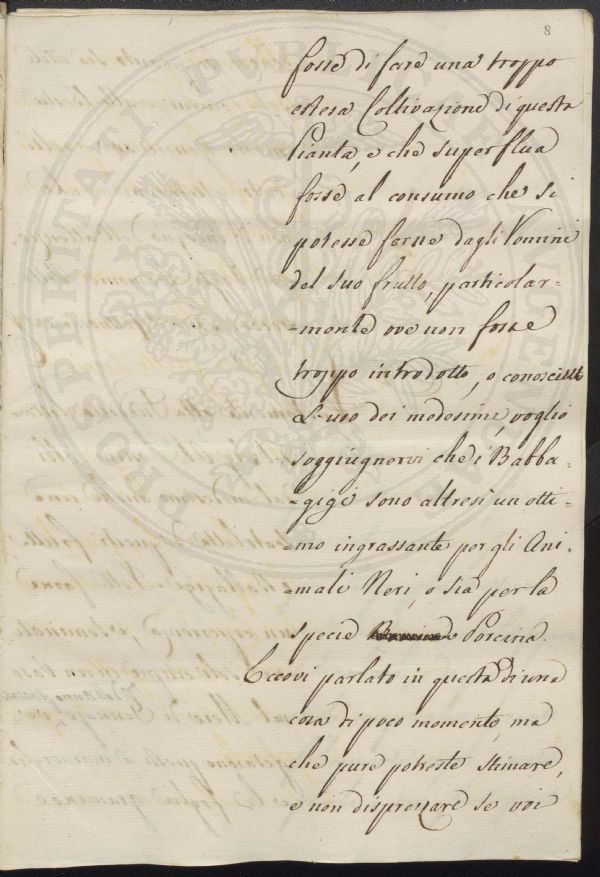 8
fosse di fare una troppo
estesa Coltivazione di questa
Pianta, e che superflua
fosse al consumo che si
potesse farne dagli Uomini
del suo frutto, particolar=
=mente ove non fosse
troppo introdotto, o conosciutt
L'uso dei medesimi, voglio
soggiugnervi che i Babba=
=gigi sono altresì un otti=
=mo ingrassante per gli Ani=
=mali Neri, o sia per la
specie Porcina.
Eccovi parlato in questa di una
cosa di poco momento, ma
che pure potreste stimare,
e non disprezzare se voi